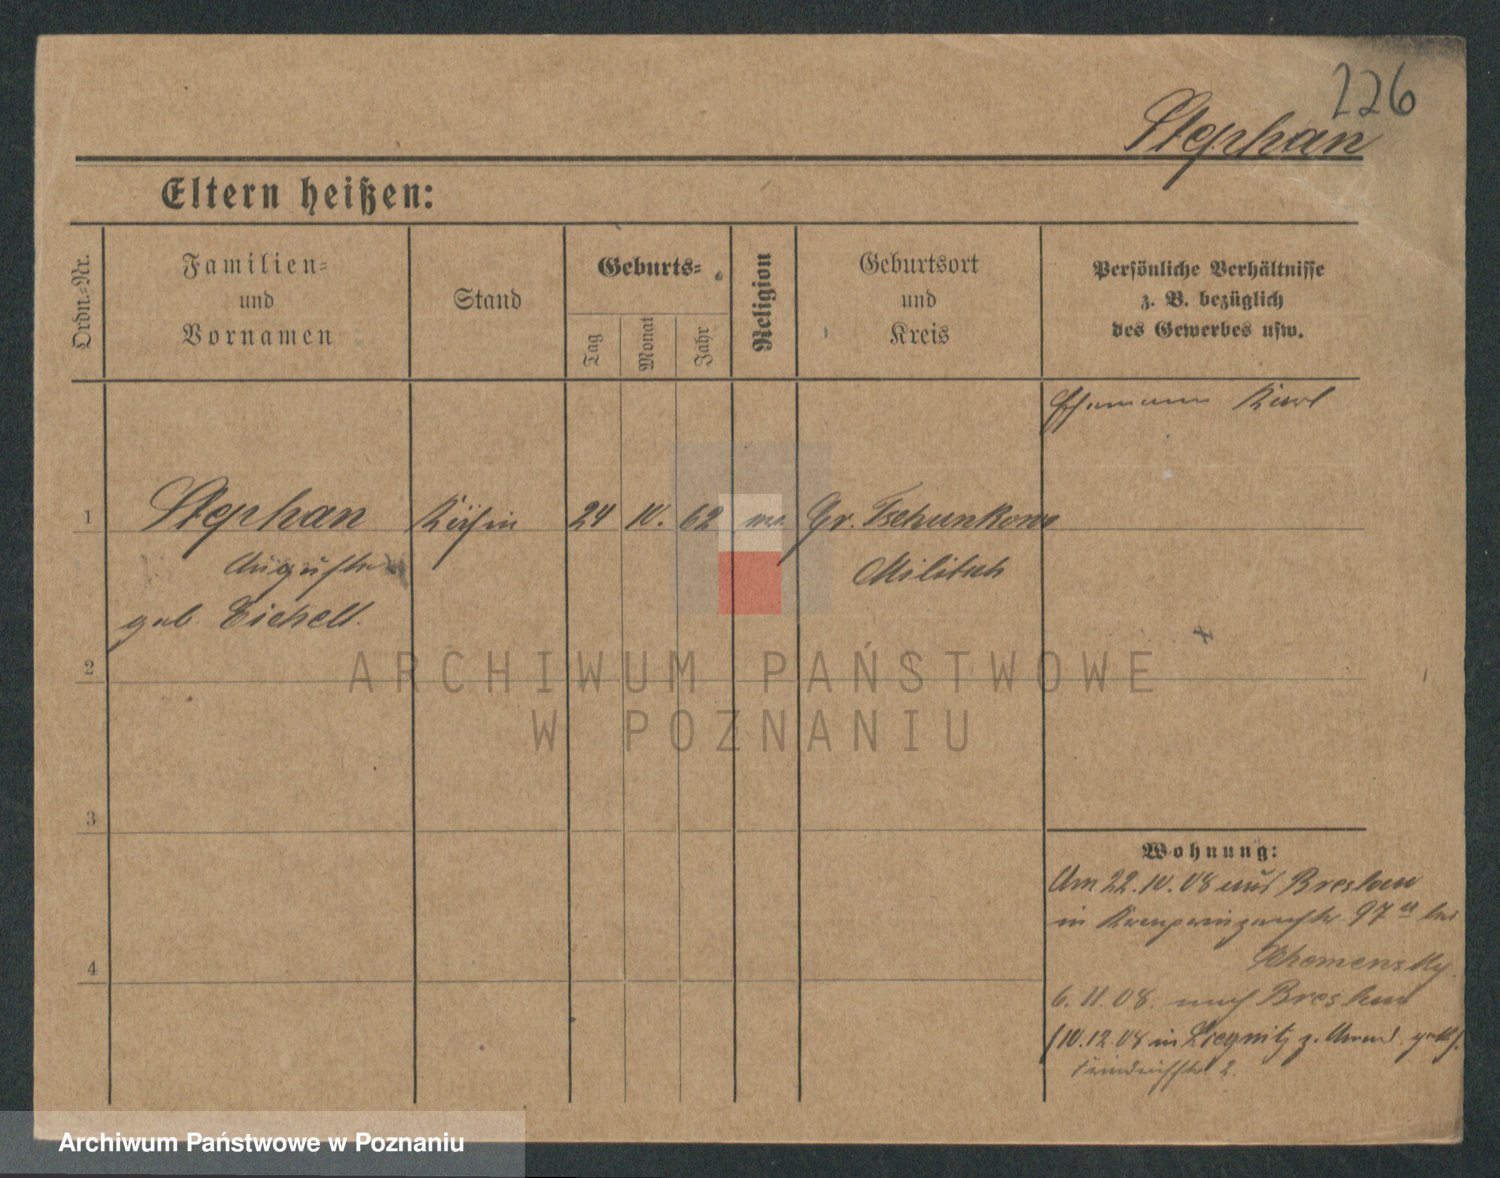 226
Stephan
Eltern heißen:
Ordn.-Nr.
Familien-
und
Vornamen
Stand
Geburts-
Tag
Monat
Jahr
Religion
Geburtsort
und
Kreis
Persönliche Verhältnisse
z. B. bezüglich
des Gewerbes usw.
Ehemann Karl
1
Stephan Köchin 24 10. 62 Gr. Tschunkawe
Auguste Militsch
geb. Eichelt
2
ARCHIWUM PAŃSTWOWE
W POZNANIU
3
Wohnung:
Am 22.10.08 aus Breslau
in Kronprinzenstr. 97 II bei
4
6.11.08. nach Breslau
(10.12.08 in Liegnitz z. Anm.
2.
Archiwum Państwowe w Poznaniu